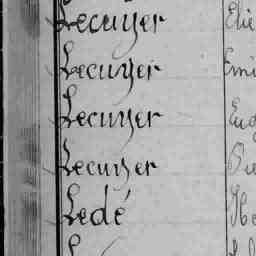 Lecuyer Elie
Lecuyer Emi
Lecuyer Eug
Lecuyer
Ledé